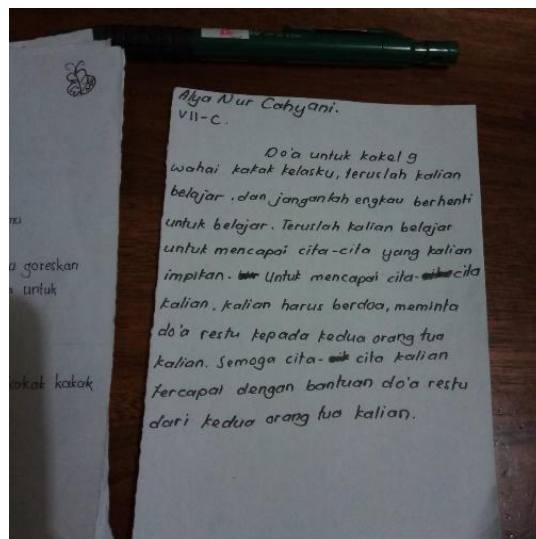 nu
goreskan
untuk
kakak
Alya Nur Cahyani.
VII-C.
Do'a untuk kakel 9
wahai kakak kelasku, teruslah kalian
belajar. dan janganlah engkau berhenti
untuk belajar. Teruslah kalian belajar
untuk mencapai cita-cita yang kalian
impikan. Untuk mencapai cita-cita
kalian. kalian harus berdoa, meminta
do'a restu kepada kedua orang tua
kalian. Semoga cita-cita kalian
tercapai dengan bantuan do'a restu
dari kedua orang tua kalian.